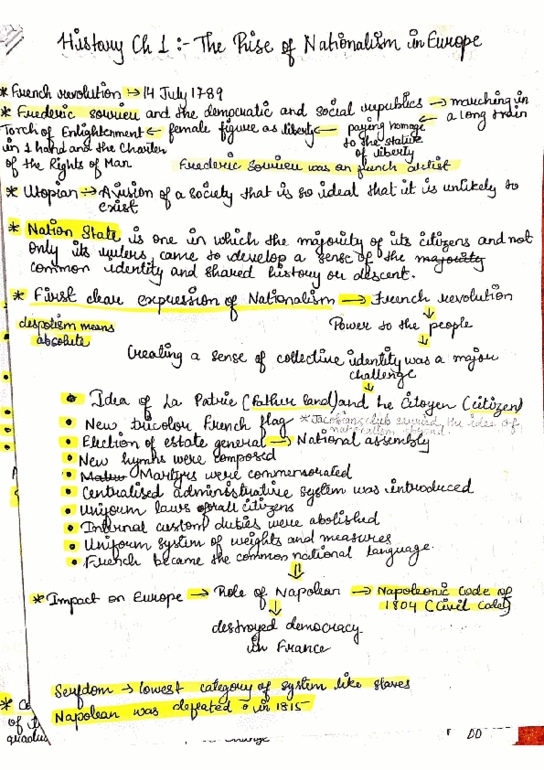 History Ch 1 :- The Rise of Nationalism in Europe
* French revolution → 14 July 1789
* Frederic sorrieu and the democratic and social republics → marching in
Torch of Enlightenment ← female figure as liberty ← paying homage ← a long train
in 1 hand and the Charter to the statue
of the Rights of Man of liberty
Frederic Sorrieu was an french artist
* Utopian → A vision of a society that is so ideal that it is unlikely to
exist
* Nation State is one in which the majority of its citizens and not
only its rulers, came to develop a sense of the majority
common identity and shared history or descent.
* First clear expression of Nationalism → French revolution
↓
despotism means Power to the people
absolute ↓
Creating a sense of collective identity was a major
challenge
↓
• Idea of La Patrie (Father land) and he Citoyen (citizen)
• New tricolor French flag * Jacobians club spread the idea of
nationalism abroad
• Election of estate general → National assembly
• New hymns were composed
• Martyrs were commensorated
• Centralised administrative system was introduced
• Uniform laws for all citizens
• Internal custom duties were abolished
• Uniform system of weights and measures
• French became the common national language.
⇓
* Impact on Europe → Role of Napolean → Napoleonic Code of
↓ 1804 (Civil Code)
destroyed democracy
in France
Serfdom → lowest category of system like slaves
Napolean was defeated in 1815